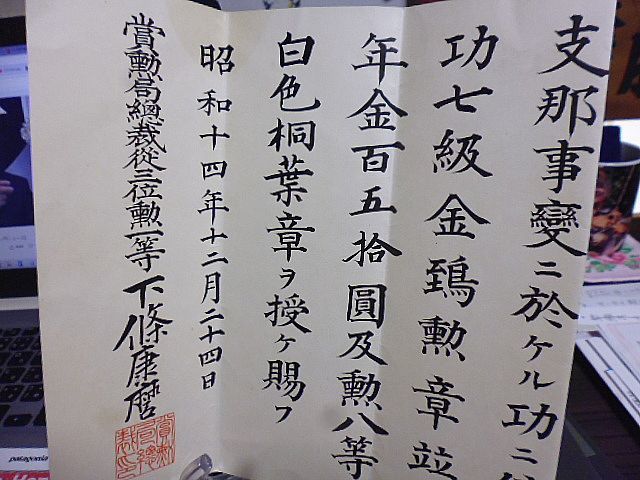 支那事變ニ於ケル功ニ
功七級金鵄勲章竝
年金百五拾圓及勲八等
白色桐葉章ヲ授ケ賜フ
昭和十四年十二月二十四日
賞勲局總裁從三位勲一等下條康麿
賞勲局總裁印
patagonia